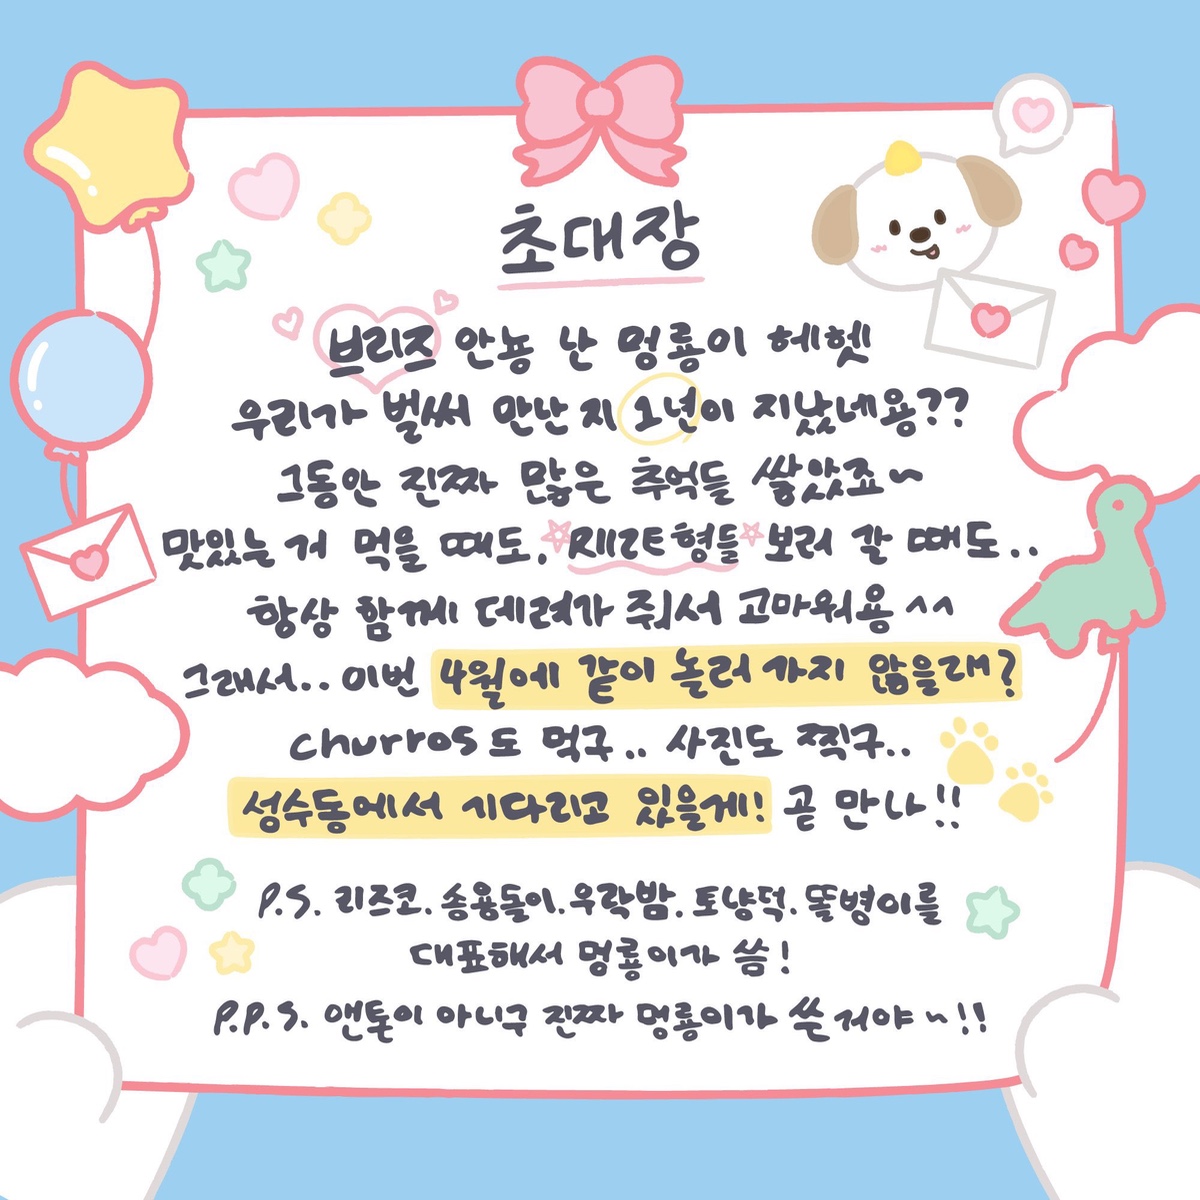 초대장
브리즈 안뇽 난 멍룡이 헤헷
우리가 벌써 만난 지 1년이 지났네용??
그동안 진짜 많은 추억들 쌓았죠~
맛있는 거 먹을 때도, RIIZE 형들 보러 갈 때도..
항상 함께 데려가 줘서 고마워용 ^^
그래서.. 이번 4월에 같이 놀러 가지 않을래?
churros도 먹구.. 사진도 찍구..
성수동에서 기다리고 있을게! 곧 만나!!
P.S. 리즈코. 송용돌이. 우락밤. 토냥덕. 똘병이를
대표해서 멍룡이가 씀!
P.P.S. 앤톤이 아니구 진짜 멍룡이가 쓴거야~!!